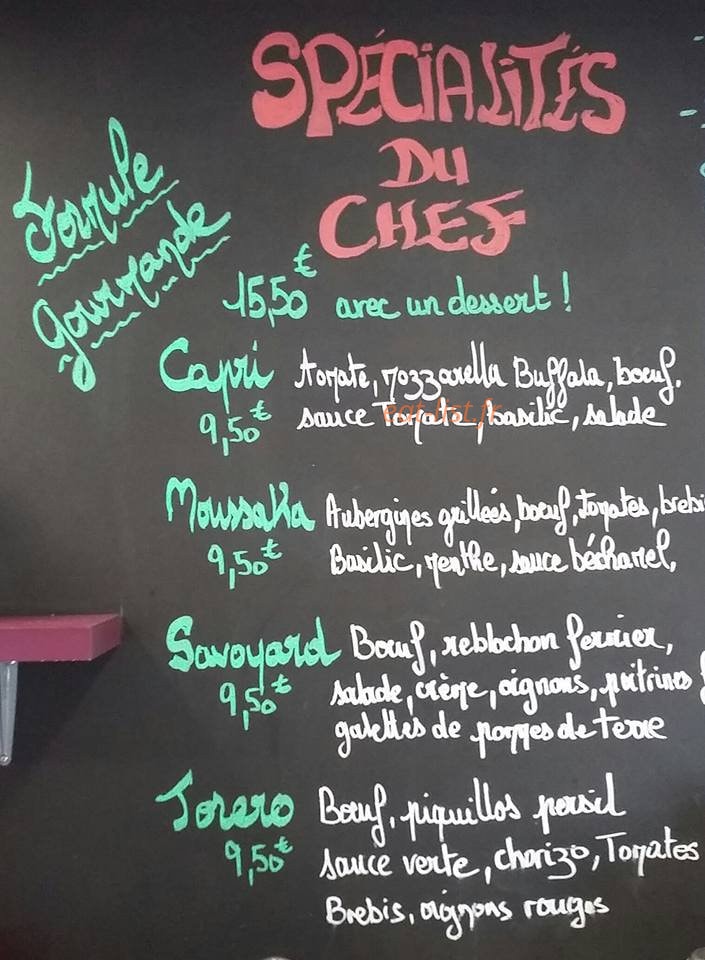 SPÉCIALITÉS
DU
CHEF
Formule
Gourmande
15,50€ avec un dessert !
Capri Tomate, mozzarella Buffala, bœuf,
9,50€ sauce Tomate, basilic, salade
eat-list.fr
Moussaka Aubergines grillées, bœuf, tomates, brebis
9,50€ Basilic, menthe, sauce béchamel,
Savoyard Bœuf, reblochon fermier,
9,50€ salade, crème, oignons, poitrines
galettes de pommes de terre
Torero Bœuf, piquillos persil
9,50€ sauce verte, chorizo, Tomates
Brebis, oignons rouges